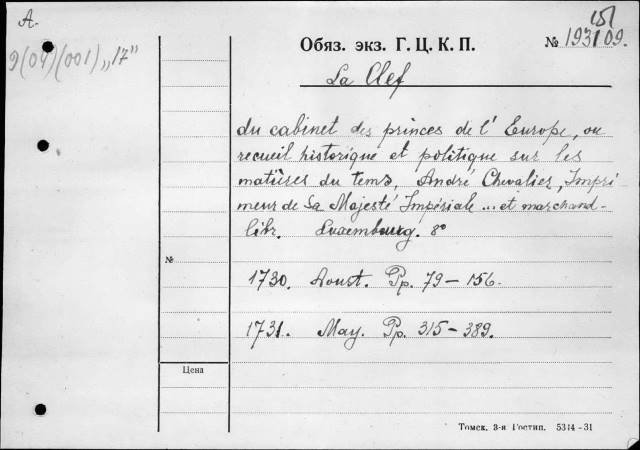 A.
9(04)(001)„17"
Обяз. экз. Г. Ц. К. П.
№ 193109.
La Clef
du cabinet des princes de l' Europe, ou
recueil historique et politique sur les
matières du tems, André Chevalier, Impri-
meur de Sa Majesté Impériale ... et marchand-
libr. Luxembourg. 8°
№
1730. Aoust. Pp. 79-156.
1731. May. Pp. 315-389.
Цена
Томск. 3-я Гостип. 5314-31